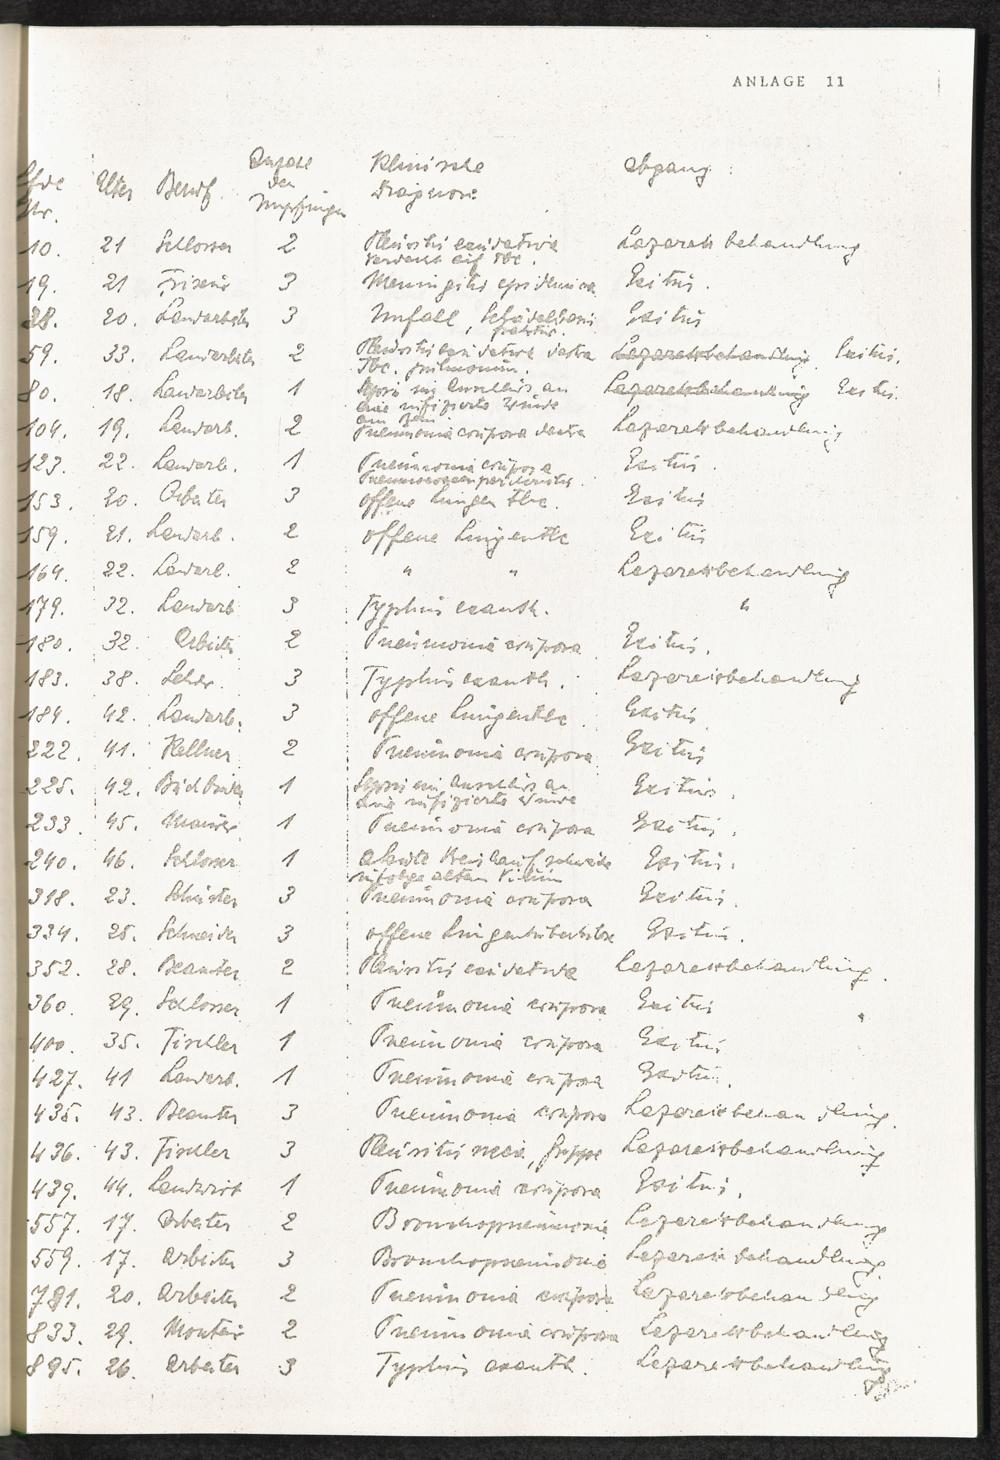 ANLAGE 11
Lfde Nr. Alter Beruf. Anzahl der Impfungen Klinische Diagnose Abgang:
10. 21 Schlosser 2 Pleuritis exsudativa Lazarettbehandlung
Verdacht auf Tbc.
19. 21 Friseur 3 Meningitis epidemica Exitus.
28. 20. Landarbeiter 3 Unfall, Schädelbasisfraktur. Exitus
59. 33. Landarbeiter 2 Pleuritis exsudativa dextra Lazarettbehandlung. Exitus.
Tbc. pulmonum.
80. 18. Landarbeiter 1 Sepsis im Anschluss an Lazarettbehandlung Exitus.
eine infizierte Wunde
am
104. 19. Landarb. 2 Pneumonia crouposa dextra Lazarettbehandlung
123. 22. Landarb. 1 Pneumonia crouposa Exitus.
153. 20. Arbeiter 3 offene Lungen Tbc. Exitus
159. 21. Landarb. 2 offene Lungentbc Exitus
164. 22. Landarb. 2 " " Lazarettbehandlung
179. 32. Landarb 3 Typhus exanth. "
180. 32. Arbeiter 2 Pneumonia crouposa Exitus.
183. 38. 3 Typhus exanth. Lazarettbehandlung
184. 42. Landarb. 3 offene Lungentbc. Exitus
222. 41. Kellner 2 Pneumonia crouposa Exitus
225. 42. Buchbinder 1 Sepsis im Anschluss an Exitus.
eine infizierte Wunde
233. 45. Maurer 1 Pneumonia crouposa Exitus.
240. 46. Schlosser 1 akute Kreislaufschwäche Exitus.
infolge altem Vitium
318. 23. Schuster 3 Pneumonia crouposa Exitus.
334. 25. Schneider 3 offene Lungentuberkulose Exitus.
352. 28. Beamter 2 Pleuritis exsudativa Lazarettbehandlung.
360. 29. Schlosser 1 Pneumonia crouposa Exitus
400. 35. Tischler 1 Pneumonia crouposa Exitus
427. 41 Landarb. 1 Pneumonia crouposa Exitus.
435. 43. Beamter 3 Pneumonia crouposa Lazarettbehandlung.
436. 43. Tischler 3 Pleuritis sicca, Grippe Lazarettbehandlung
439. 44. Landwirt 1 Pneumonia crouposa Exitus.
557. 17. Arbeiter 2 Bronchopneumonie Lazarettbehandlung
559. 17. Arbeiter 3 Bronchopneumonie Lazarettbehandlung.
781. 20. Arbeiter 2 Pneumonia crouposa Lazarettbehandlung
833. 29. Monteur 2 Pneumonia crouposa Lazarettbehandlung
895. 26. Arbeiter 3 Typhus exanth. Lazarettbehandlung